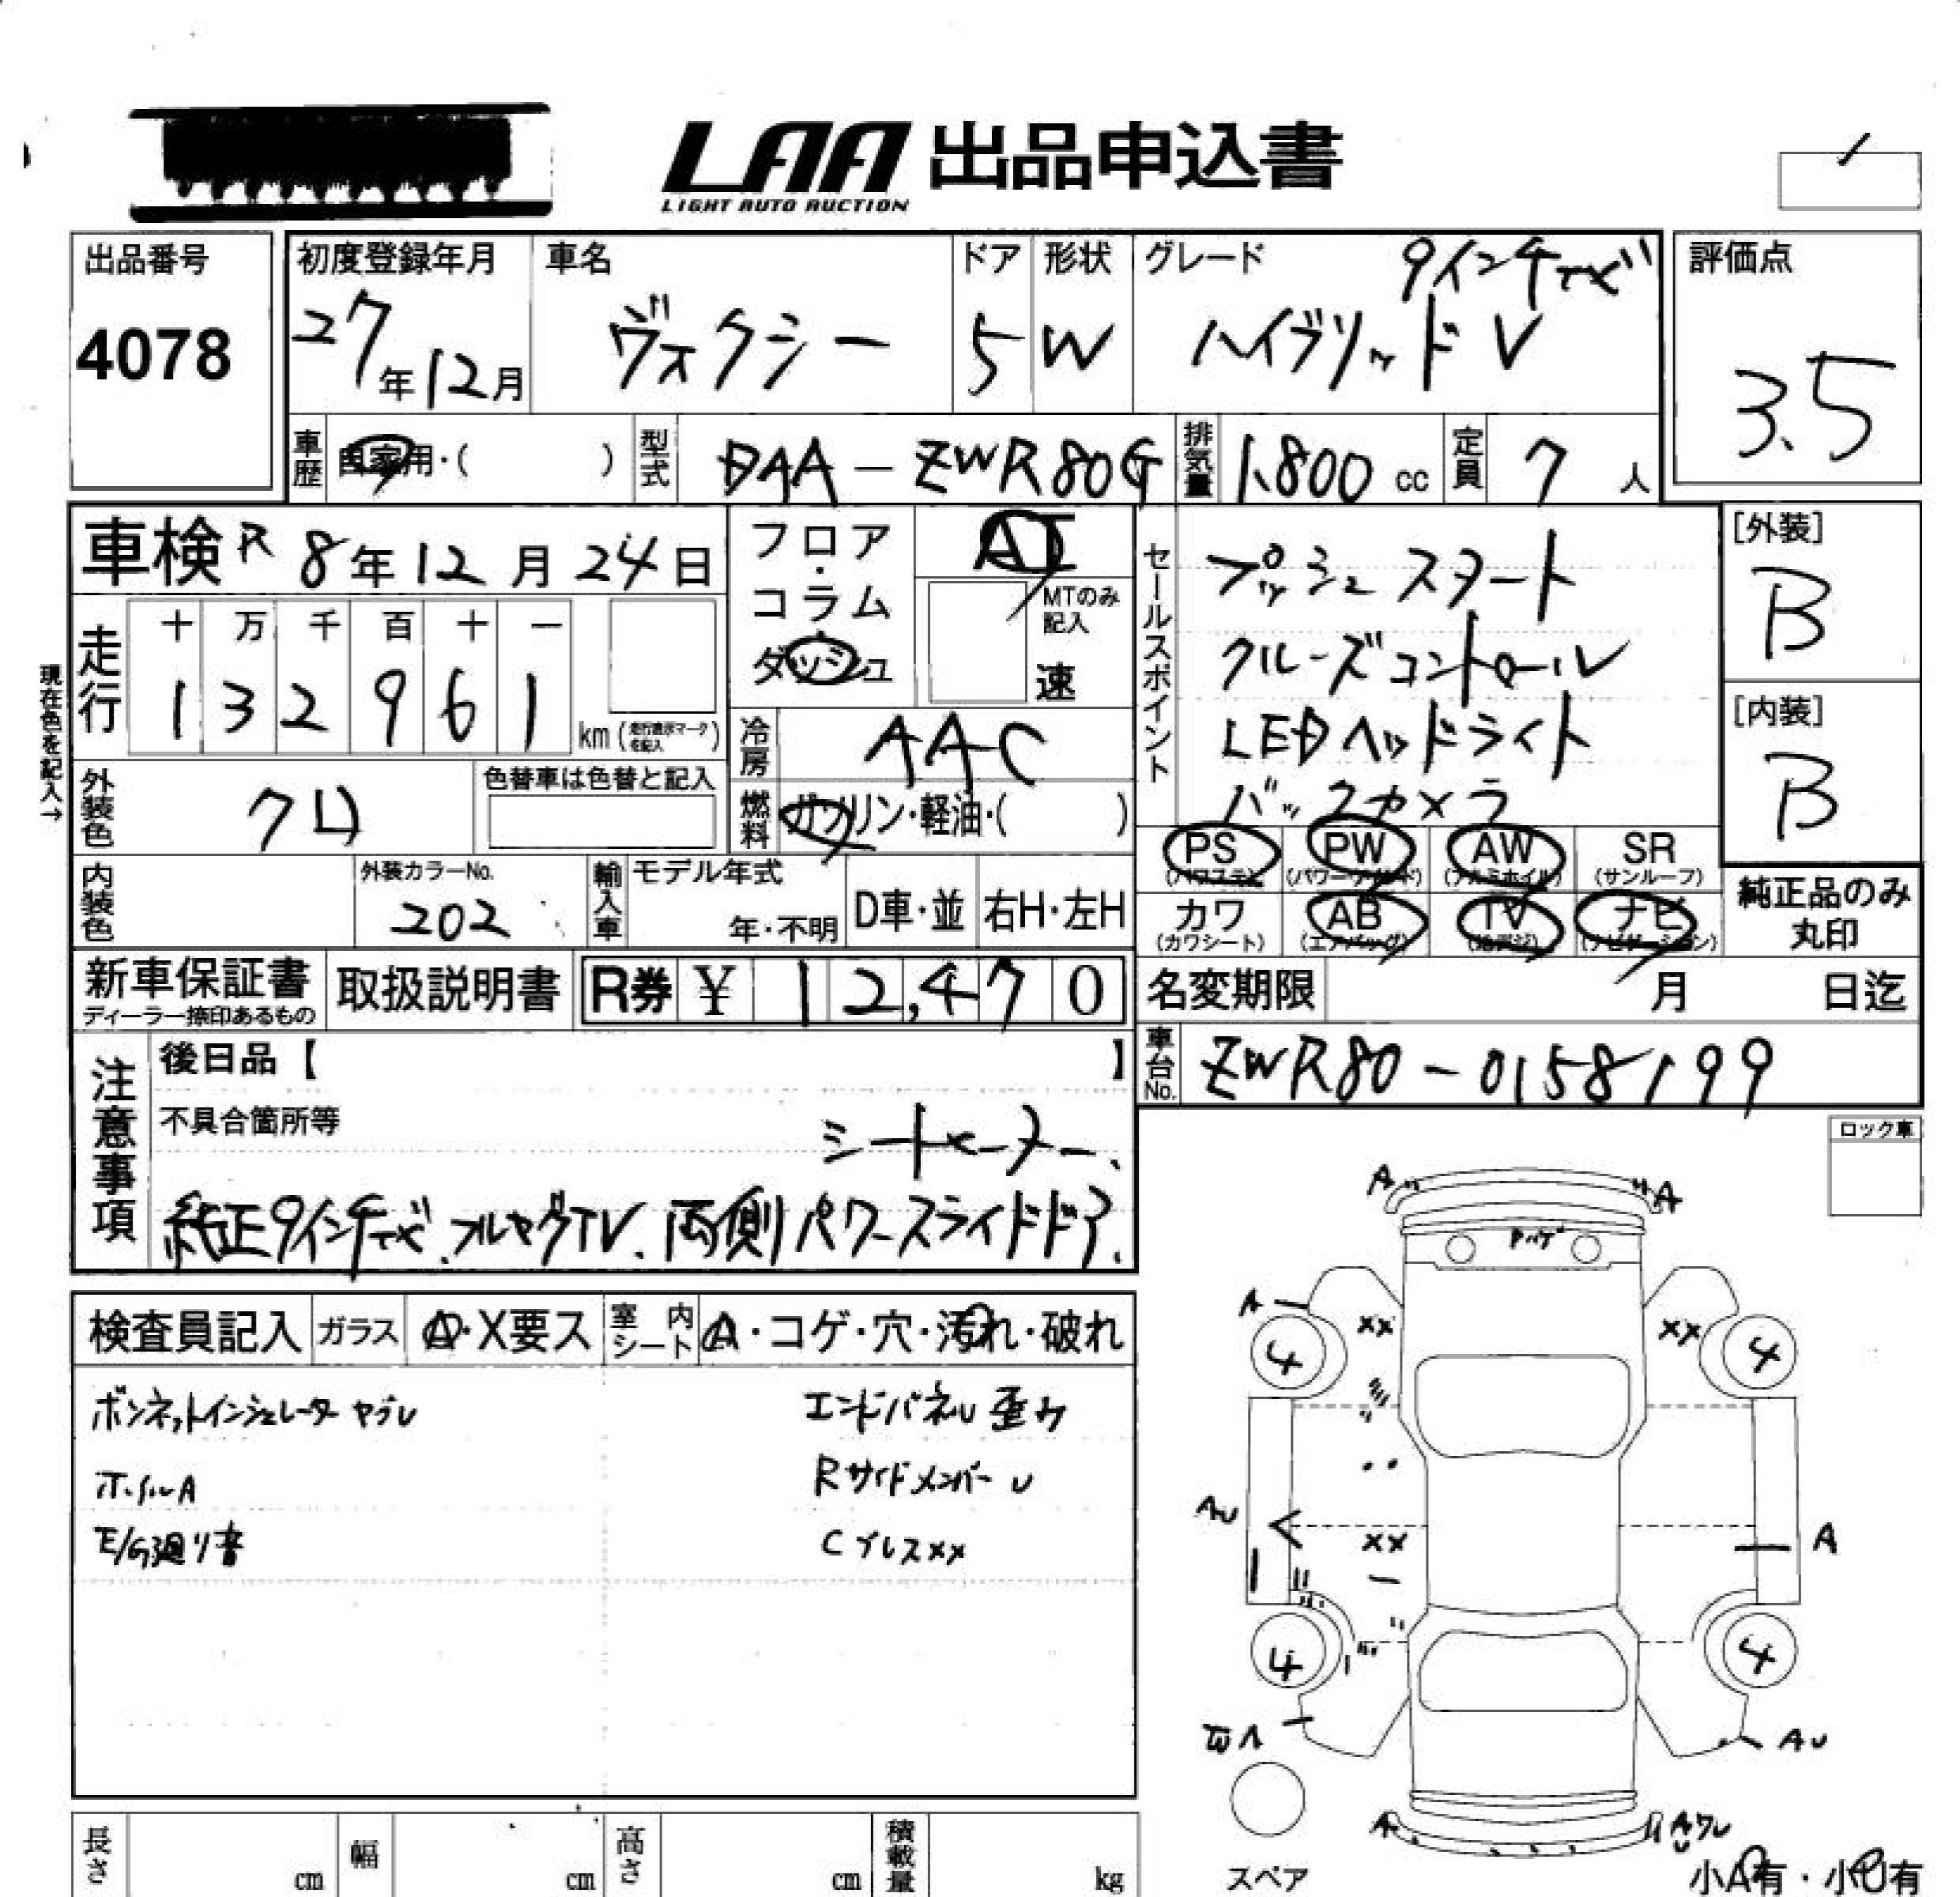 LAA 出品申込書
LIGHT AUTO AUCTION
出品番号
4078
初度登録年月
27年12月
車名
ヴォクシー
ドア
5
形状
W
グレード
9インチナビ
ハイブリッド V
評価点
3.5
車歴
自家用・( )
型式
DAA-ZWR80G
排気量
1,800 cc
定員
7 人
車検 R 8年 12月 24日
フロア・コラム・ダッシュ
AT
MTのみ記入
速
セールスポイント
プッシュスタート
クルーズコントロール
LEDヘッドライト
バックカメラ
[外装]
B
[内装]
B
現在色を記入→
走行
十 万 千 百 十 一
1 3 2 9 6 1
km
冷房
AAC
外装色
クロ
色替車は色替と記入
燃料
ガソリン・軽油・( )
PS
(パワステ)
PW
(パワーウインド)
AW
(アルミホイル)
SR
(サンルーフ)
内装色
外装カラーNo.
202
輸入車
モデル年式
年・不明
D車・並
右H・左H
カワ
(カワシート)
AB
(エアバッグ)
TV
(地デジ)
ナビ
(ナビゲーション)
純正品のみ
丸印
新車保証書
ディーラー捺印あるもの
取扱説明書
R券 ¥ 12,470
名変期限 月 日迄
車台No.
ZWR80-0158199
注意事項
後日品【 】
不具合箇所等
シートヒーター、
純正9インチナビ、フルセグTV、両側パワースライドドア、
ロック車
検査員記入
ガラス
A・X要ス
室内シート
A・コゲ・穴・汚れ・破れ
ボンネットインシュレーター ヤブレ
エンドパネル 歪み
ホイールA
Rサイドメンバー U
E/G廻り音
Cプレスxx
A
A
A
xx
xx
4
4
AU
xx
A
4
4
AU
A
スペア
小A有・小U有
長さ
cm
幅
cm
高さ
cm
積載量
kg